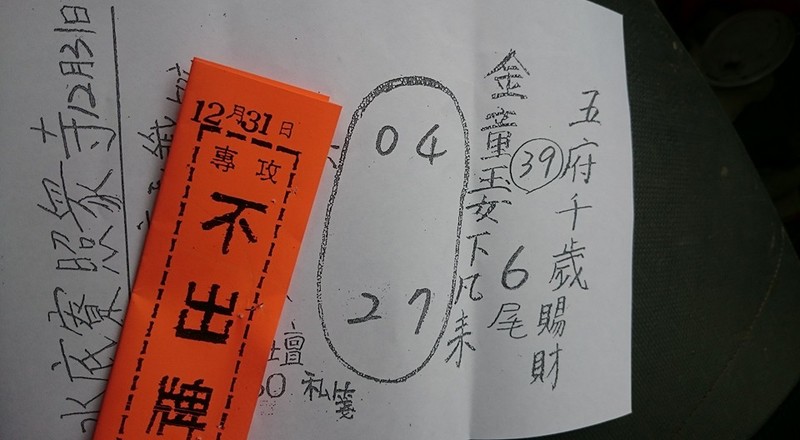 五府千歲賜財
39
6尾
金童玉女下凡来
04
27
壇
私箋
12月31日
專攻
不出牌
水底寮照眾寺12月31日